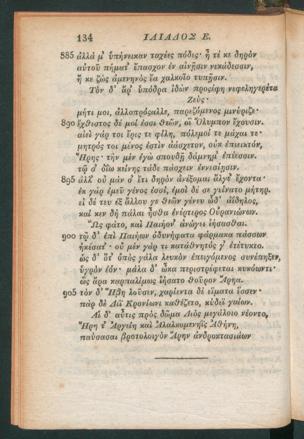 134 ΙΛΙΑΔΟΣ Ε.
885 ἀλλά μ' ὑπήνεικαν ταχέες πόδες· ἦ τέ κε δηρὸν
αὐτοῦ πήματ' ἔπασχον ἐν αἰνῇσιν νεκάδεσσιν,
ἤ κε ζὼς ἀμενηνὸς ἔα χαλκοῖο τυπῇσιν.
Τὸν δ' ἄρ' ὑπόδρα ἰδὼν προσέφη νεφεληγερέτα
Ζεύς·
μήτι μοι, ἀλλοπρόσαλλε, παρεζόμενος μινύριζε·
890 ἔχθιστος δέ μοί ἐσσι θεῶν, οἳ Ὄλυμπον ἔχουσιν.
αἰεὶ γάρ τοι ἔρις τε φίλη, πόλεμοί τε μάχαι τε·
μητρός τοι μένος ἐστὶν ἀάσχετον, οὐκ ἐπιεικτόν,
Ἥρης· τὴν μὲν ἐγὼ σπουδῇ δάμνημ' ἐπέεσσιν.
τῷ σ' ὀΐω κείνης τάδε πάσχειν ἐννεσίῃσιν.
895 ἀλλ' οὐ μάν σ' ἔτι δηρὸν ἀνέξομαι ἄλγε' ἔχοντα·
ἐκ γὰρ ἐμεῦ γένος ἐσσί, ἐμοὶ δέ σε γείνατο μήτηρ.
εἰ δέ τευ ἐξ ἄλλου γε θεῶν γένευ ὧδ' ἀΐδηλος,
καί κεν δὴ πάλαι ἦσθα ἐνέρτερος Οὐρανιώνων.
Ὣς φάτο, καὶ Παιήον' ἀνώγει ἰήσασθαι.
900 τῷ δ' ἐπὶ Παιήων ὀδυνήφατα φάρμακα πάσσων
ἠκέσατ'· οὐ μὲν γάρ τι καταθνητός γ' ἐτέτυκτο.
ὡς δ' ὅτ' ὀπὸς γάλα λευκὸν ἐπειγόμενος συνέπηξεν,
ὑγρὸν ἐόν· μάλα δ' ὦκα περιστρέφεται κυκόωντι·
ὣς ἄρα καρπαλίμως ἰήσατο θοῦρον Ἄρηα.
905 τὸν δ' Ἥβη λοῦσεν, χαρίεντα δὲ εἵματα ἕσσεν·
πὰρ δὲ Διῒ Κρονίωνι καθέζετο, κύδεϊ γαίων.
Αἱ δ' αὖτις πρὸς δῶμα Διὸς μεγάλοιο νέοντο,
Ἥρη τ' Ἀργείη καὶ Ἀλαλκομενηῒς Ἀθήνη,
παύσασαι βροτολοιγὸν Ἄρην ἀνδροκτασιάων